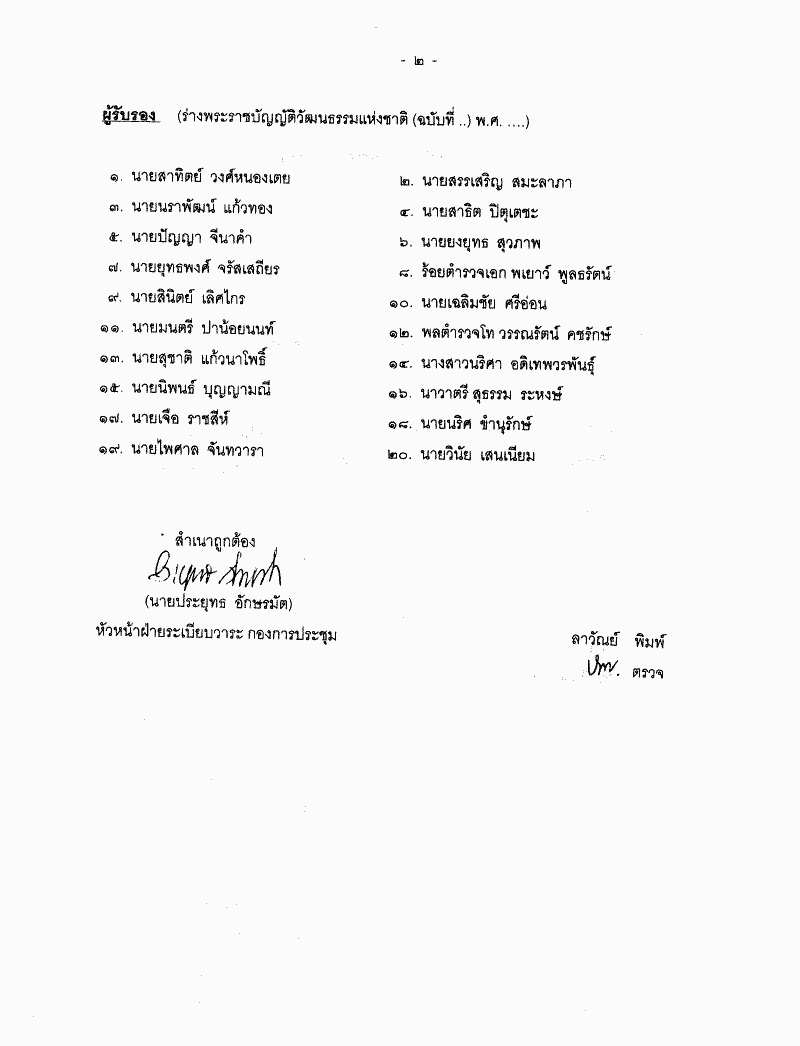 - ๒ -
ผู้รับรอง (ร่างพระราชบัญญัติวัฒนธรรมแห่งชาติ (ฉบับที่ ..) พ.ศ. ....)
๑. นายสาทิตย์ วงศ์หนองเตย ๒. นายสรรเสริญ สมะลาภา
๓. นายนราพัฒน์ แก้วทอง ๔. นายสาธิต ปิตุเตชะ
๕. นายปัญญา จีนาคำ ๖. นายยงยุทธ สุวภาพ
๗. นายยุทธพงศ์ จรัสเสถียร ๘. ร้อยตำรวจเอก พเยาว์ พูลธรัตน์
๙. นายสินิตย์ เลิศไกร ๑๐. นายเฉลิมชัย ศรีอ่อน
๑๑. นายมนตรี ปาน้อยนนท์ ๑๒. พลตำรวจโท วรรณรัตน์ คชรักษ์
๑๓. นายสุชาติ แก้วนาโพธิ์ ๑๔. นางสาวนริศา อดิเทพวรพันธุ์
๑๕. นายนิพนธ์ บุญญามณี ๑๖. นาวาตรี สุธรรม ระหงษ์
๑๗. นายเจือ ราชสีห์ ๑๘. นายนริศ ขำนุรักษ์
๑๙. นายไพศาล จันทวารา ๒๐. นายวินัย เสนเนียม
สำเนาถูกต้อง
(นายประยุทธ อักษรมัต)
หัวหน้าฝ่ายระเบียบวาระ กองการประชุม
ลาวัณย์ พิมพ์
ตรวจ